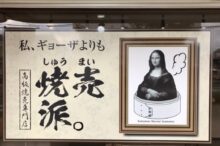 私、ギョーザよりも
しゅう まい
焼売
派。
高級焼売専門店